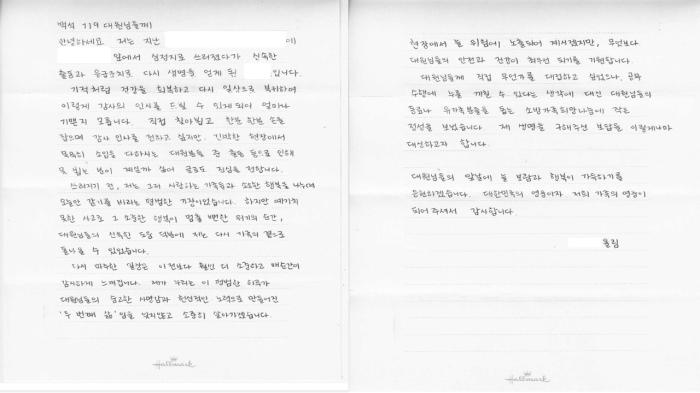 백석 119 대원님들께!
안녕하세요 저는 지난 에
앞에서 심정지로 쓰러졌다가 신속한
출동과 응급조치로 다시 생명을 얻게 된 입니다.
기적처럼 건강을 회복하고 다시 일상으로 복귀하여
이렇게 감사의 인사를 드릴 수 있게되어 얼마나
기쁜지 모릅니다. 직접 찾아뵙고 한분 한분 손을
잡으며 감사 인사를 전하고 싶지만, 긴박한 현장에서
묵묵히 소임을 다하시는 대원분들 중 출동 등으로 인해
못 뵙는 분이 계실까 싶어 글로도 진심을 전합니다.
쓰러지기 전, 저는 그저 사랑하는 가족들과 소소한 행복을 나누며
오늘만 같기를 바라는 평범한 가장이었습니다. 하지만 예기치
못한 사고로 그 소중한 행복이 멈출 뻔한 위기의 순간,
대원님들의 신속한 도움 덕분에 저는 다시 가족의 곁으로
돌아올 수 있었습니다.
다시 마주한 일상은 이전보다 훨씬 더 소중하고 매순간이
감사하게 느껴집니다. 제가 누리는 이 평범한 하루가
대원님들의 숭고한 사명감과 헌신적인 노력으로 만들어진
'두 번째 삶'임을 잊지않고 소중히 살아가겠습니다.
Hallmark
현장에서 늘 위험에 노출되어 계시겠지만, 무엇보다
대원님들의 안전과 건강이 최우선 되기를 기원합니다.
대원님들께 직접 무언가를 대접하고 싶었으나, 공무
수행에 누를 끼칠 수 있다는 생각에 대신 대원님들의
동료나 유가족분들을 돕는 소방가족희망나눔에 작은
정성을 보냈습니다. 제 생명을 구해주신 보답을 이렇게나마
대신하고자 합니다.
대원님들의 앞날에 늘 보람과 행복이 가득하기를
응원하겠습니다. 대한민국의 영웅이자 저희 가족의 영웅이
되어 주셔서 감사합니다.
올림
Hallmark